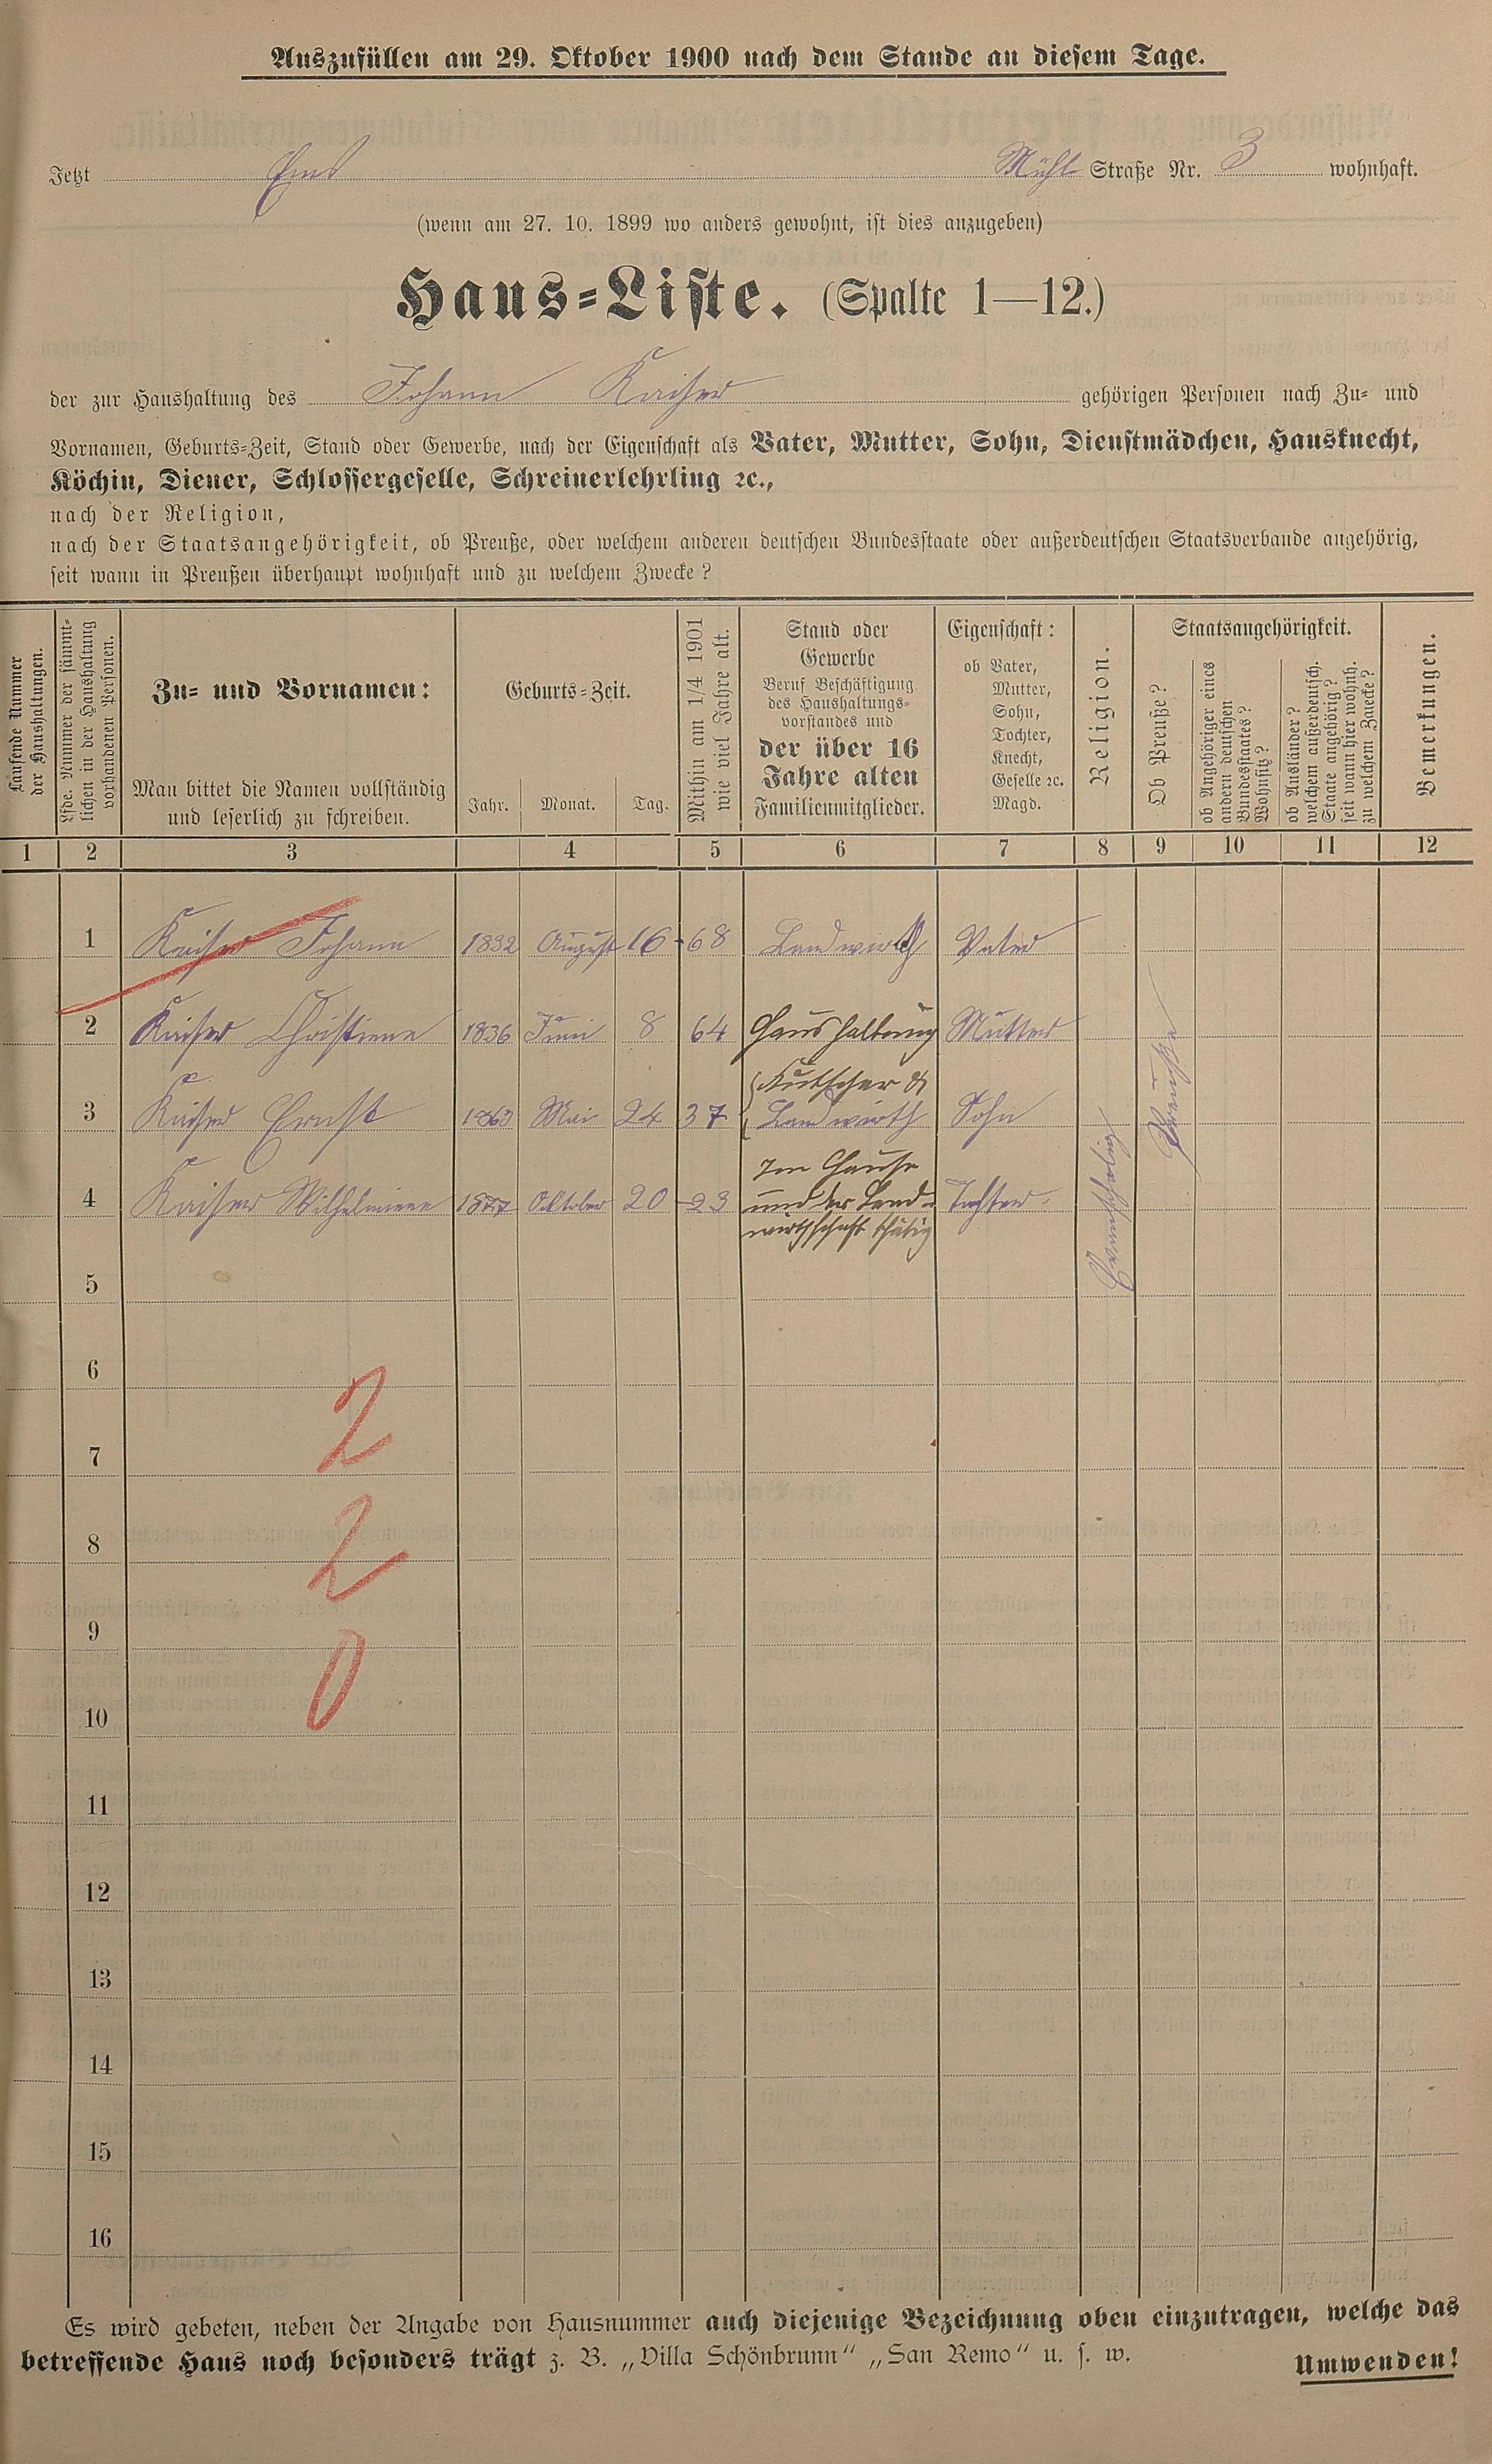 Auszufüllen am 29. Oktober 1900 nach dem Stande an diesem Tage.
Jetzt Ems Mühl Straße Nr. 3 wohnhaft.
(wenn am 27. 10. 1899 wo anders gewohnt, ist dies anzugeben)
Haus-Liste. (Spalte 1—12.)
der zur Haushaltung des Johann Kaiser gehörigen Personen nach Zu- und
Vornamen, Geburts-Zeit, Stand oder Gewerbe, nach der Eigenschaft als Vater, Mutter, Sohn, Dienstmädchen, Hausknecht,
Köchin, Diener, Schlossergeselle, Schreinerlehrling ꝛc.,
nach der Religion,
nach der Staatsangehörigkeit, ob Preuße, oder welchem anderen deutschen Bundesstaate oder außerdeutschen Staatsverbande angehörig,
seit wann in Preußen überhaupt wohnhaft und zu welchem Zwecke?
Laufende Nummer
der Haushaltungen.
Lfde. Nummer der sämmt-
lichen in der Haushaltung
vorhandenen Personen.
Zu- und Vornamen:
Man bittet die Namen vollständig
und leserlich zu schreiben.
Geburts-Zeit.
Jahr. Monat. Tag.
Mithin am 1/4 1901
wie viel Jahre alt.
Stand oder
Gewerbe
Beruf Beschäftigung
des Haushaltungs-
vorstandes und
der über 16
Jahre alten
Familienmitglieder.
Eigenschaft:
ob Vater,
Mutter,
Sohn,
Tochter,
Knecht,
Geselle ꝛc.
Magd.
Religion.
Staatsangehörigkeit.
Ob Preuße?
ob Angehöriger eines
andern deutschen
Bundesstaates?
Wohnsitz?
ob Ausländer?
welchem außerdeutsch.
Staate angehörig?
seit wann hier wohnh.
zu welchem Zwecke?
Bemerkungen.
1 2 3 4 5 6 7 8 9 10 11 12
1 Kaiser Johann 1832 August 16 68 Landwirth Vater
2 Kaiser Christiene 1836 Juni 8 64 Haushaltung Mutter
3 Kaiser Ernst 1863 Mai 24 37 Kutscher &
Landwirth Sohn
4 Kaiser Wilhelmiene 1877 Oktober 20 23 Im Hause
und der Land-
wirthschaft thätig Tochter
Evangelisch
Preuße
5
6
7
8
9
10
2
2
0
11
12
13
14
15
16
Es wird gebeten, neben der Angabe von Hausnummer auch diejenige Bezeichnung oben einzutragen, welche das
betreffende Haus noch besonders trägt z. B. „Villa Schönbrunn“ „San Remo“ u. s. w.
Umwenden!